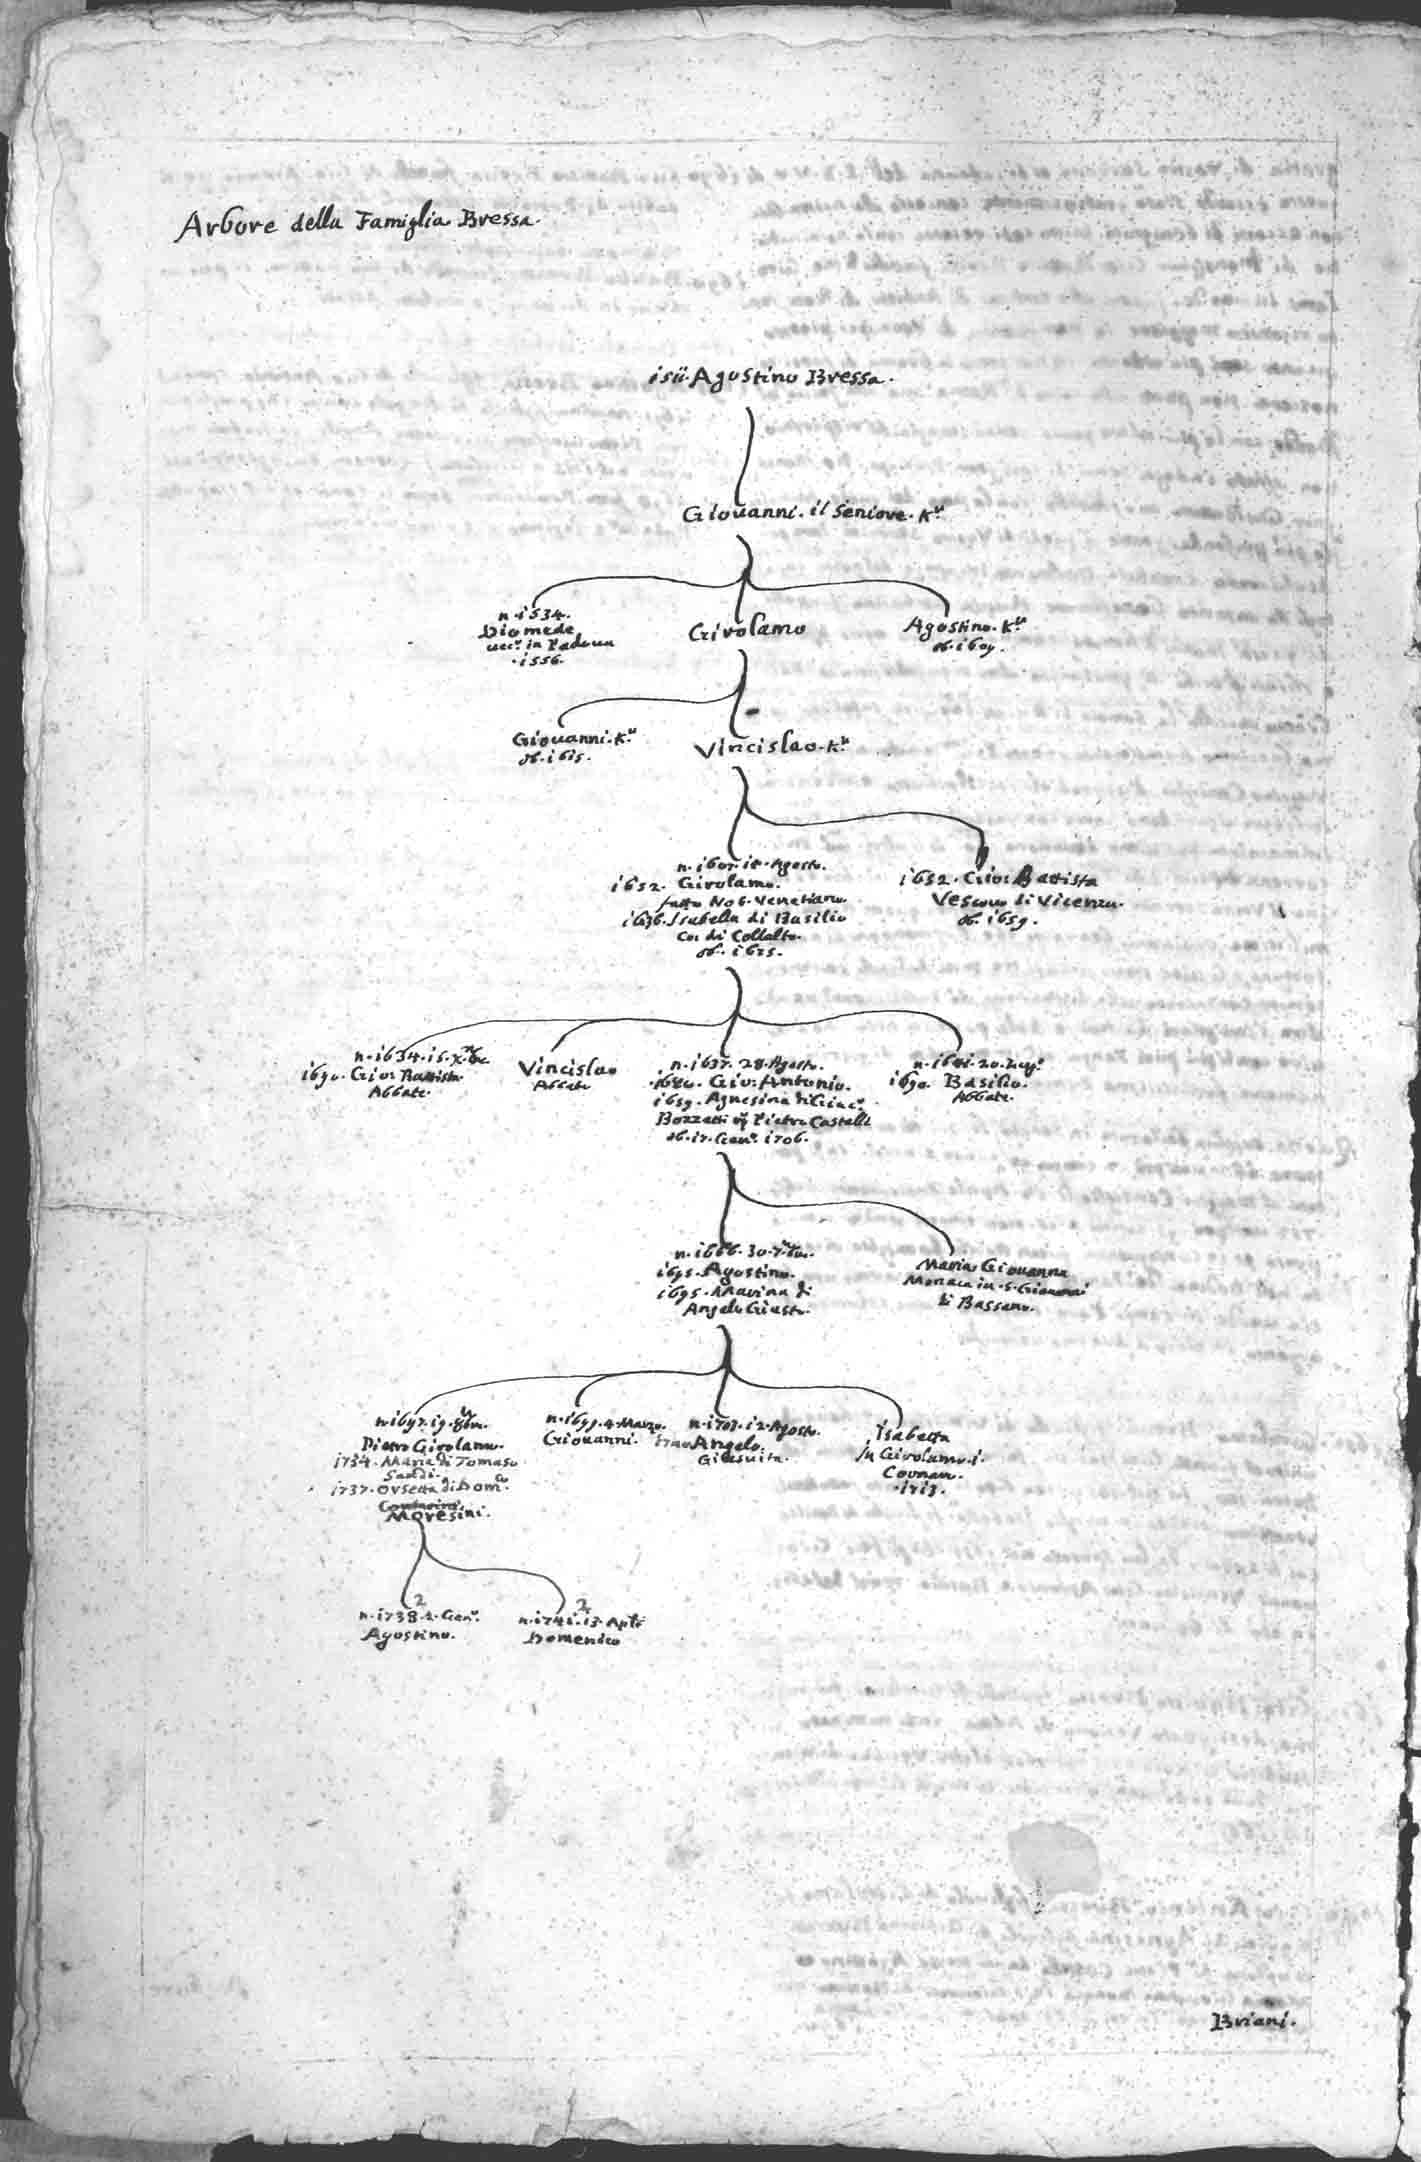 Arbore della Famiglia Bressa.
Agostino Bressa.
Giovanni. il Seniore. K.r
n. i534.
Diomede
ucc.o in Padoua
i556.
Girolamo
Agostino. K.r
ob. i609.
Giovanni. K.r
ob. i6i5.
Vincislao. K.r
Agosto.
i652. Girolamo.
fatto Nob. Venetiano.
i636. Isabella di Basilio
Co: di Collalto.
ob.
i652. Gio: Battista
Vescouo di Vicenza.
ob. i659.
n. i634. i5. X.bre
i690. Gio: Battista.
Abbate.
Vincislao
Abbate
n. i637. 28. Agosto.
Gio: Antonio.
i659. Agnesina di Giac.o
Bozzatti Pietro Castelli
ob. i7. Gen.o i706.
n. i641. 20.
i690. Basilio.
Abbate.
n. i666. 30. 7.bre
i695. Agostino.
i695. Marina di
Angelo Giusto.
Maria Giouanna
Monaca in S. Giouanni
di Bassano.
n. i697. i9. 8bre.
Pietro Girolamo.
i734. Maria di Tomaso
Sandi.
i737. Orsetta di Dom.co
Contarini.
Moresini.
n. i699. 4. Marzo.
Giouanni.
i2. Agosto.
Angelo.
Giesuita.
Isabetta
in Girolamo. i.
Cornaro.
i7i3.
2
n. i738. 2. Gen.o
Agostino.
2
n. i74i. i3. Aple
Domenico
Briani.